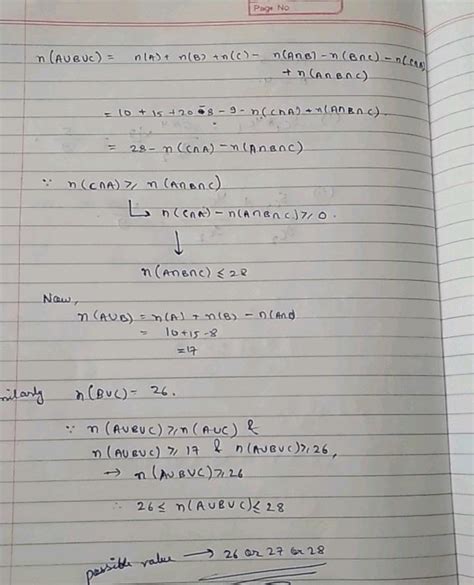 Page No
n(AUBUC) = n(A) + n(B) + n(C) - n(A∩B) - n(B∩C) - n(C∩A)
+ n(A∩B∩C)
= 10 + 15 + 20 - 8 - 9 - n(C∩A) + n(A∩B∩C)
= 28 - n(C∩A) - n(A∩B∩C)
∵ n(C∩A) ≥ n(A∩B∩C)
↳ n(C∩A) - n(A∩B∩C) ≥ 0.
↓
n(A∩B∩C) ≤ 28
Now,
n(AUB) = n(A) + n(B) - n(A∩B)
= 10+15-8
= 17
milarly n(BUC) = 26.
∵ n(AUBUC) ≥ n(AUC) &
n(AUBUC) ≥ 17 & n(AUBUC) ≥ 26,
→ n(AUBUC) ≥ 26
∴ 26 ≤ n(AUBUC) ≤ 28
possible value → 26 or 27 or 28